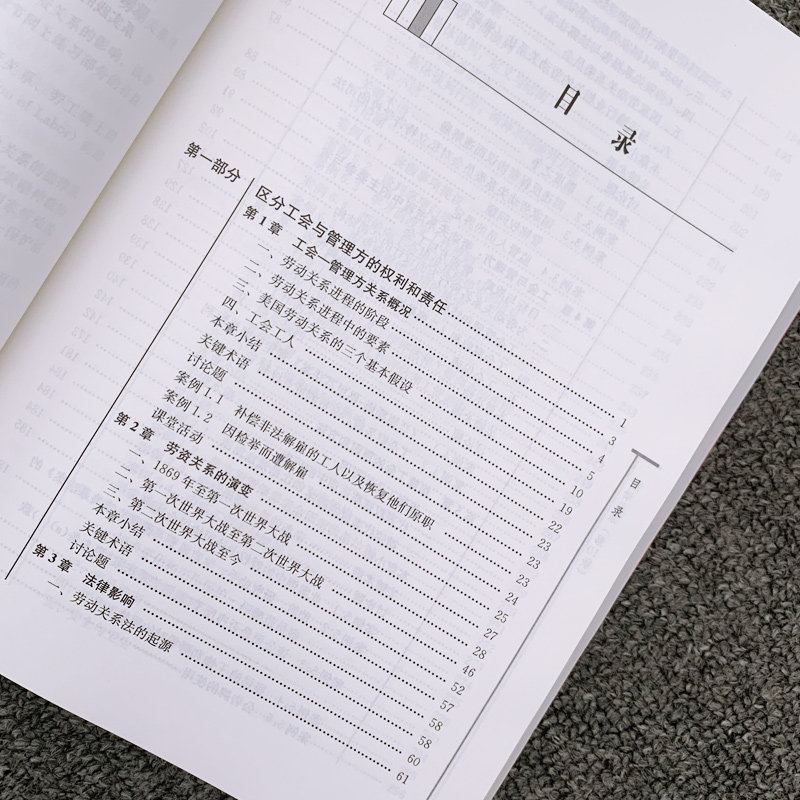 目 录
第一部分 区分工会与管理方的权利和责任 1
第1章 工会—管理方关系概况 3
一、劳动关系进程的阶段 4
二、劳动关系进程中的要素 5
三、美国劳动关系的三个基本假设 10
四、工会工人 19
本章小结 22
关键术语 23
讨论题 23
案例1.1 补偿非法解雇的工人以及恢复他们原职 23
案例1.2 因检举而遭解雇 24
课堂活动 25
第2章 劳资关系的演变 27
一、1869年至第一次世界大战 28
二、第一次世界大战至第二次世界大战 46
三、第二次世界大战至今 52
本章小结 57
关键术语 58
讨论题 58
第3章 法律影响 60
一、劳动关系法的起源 61
目 录